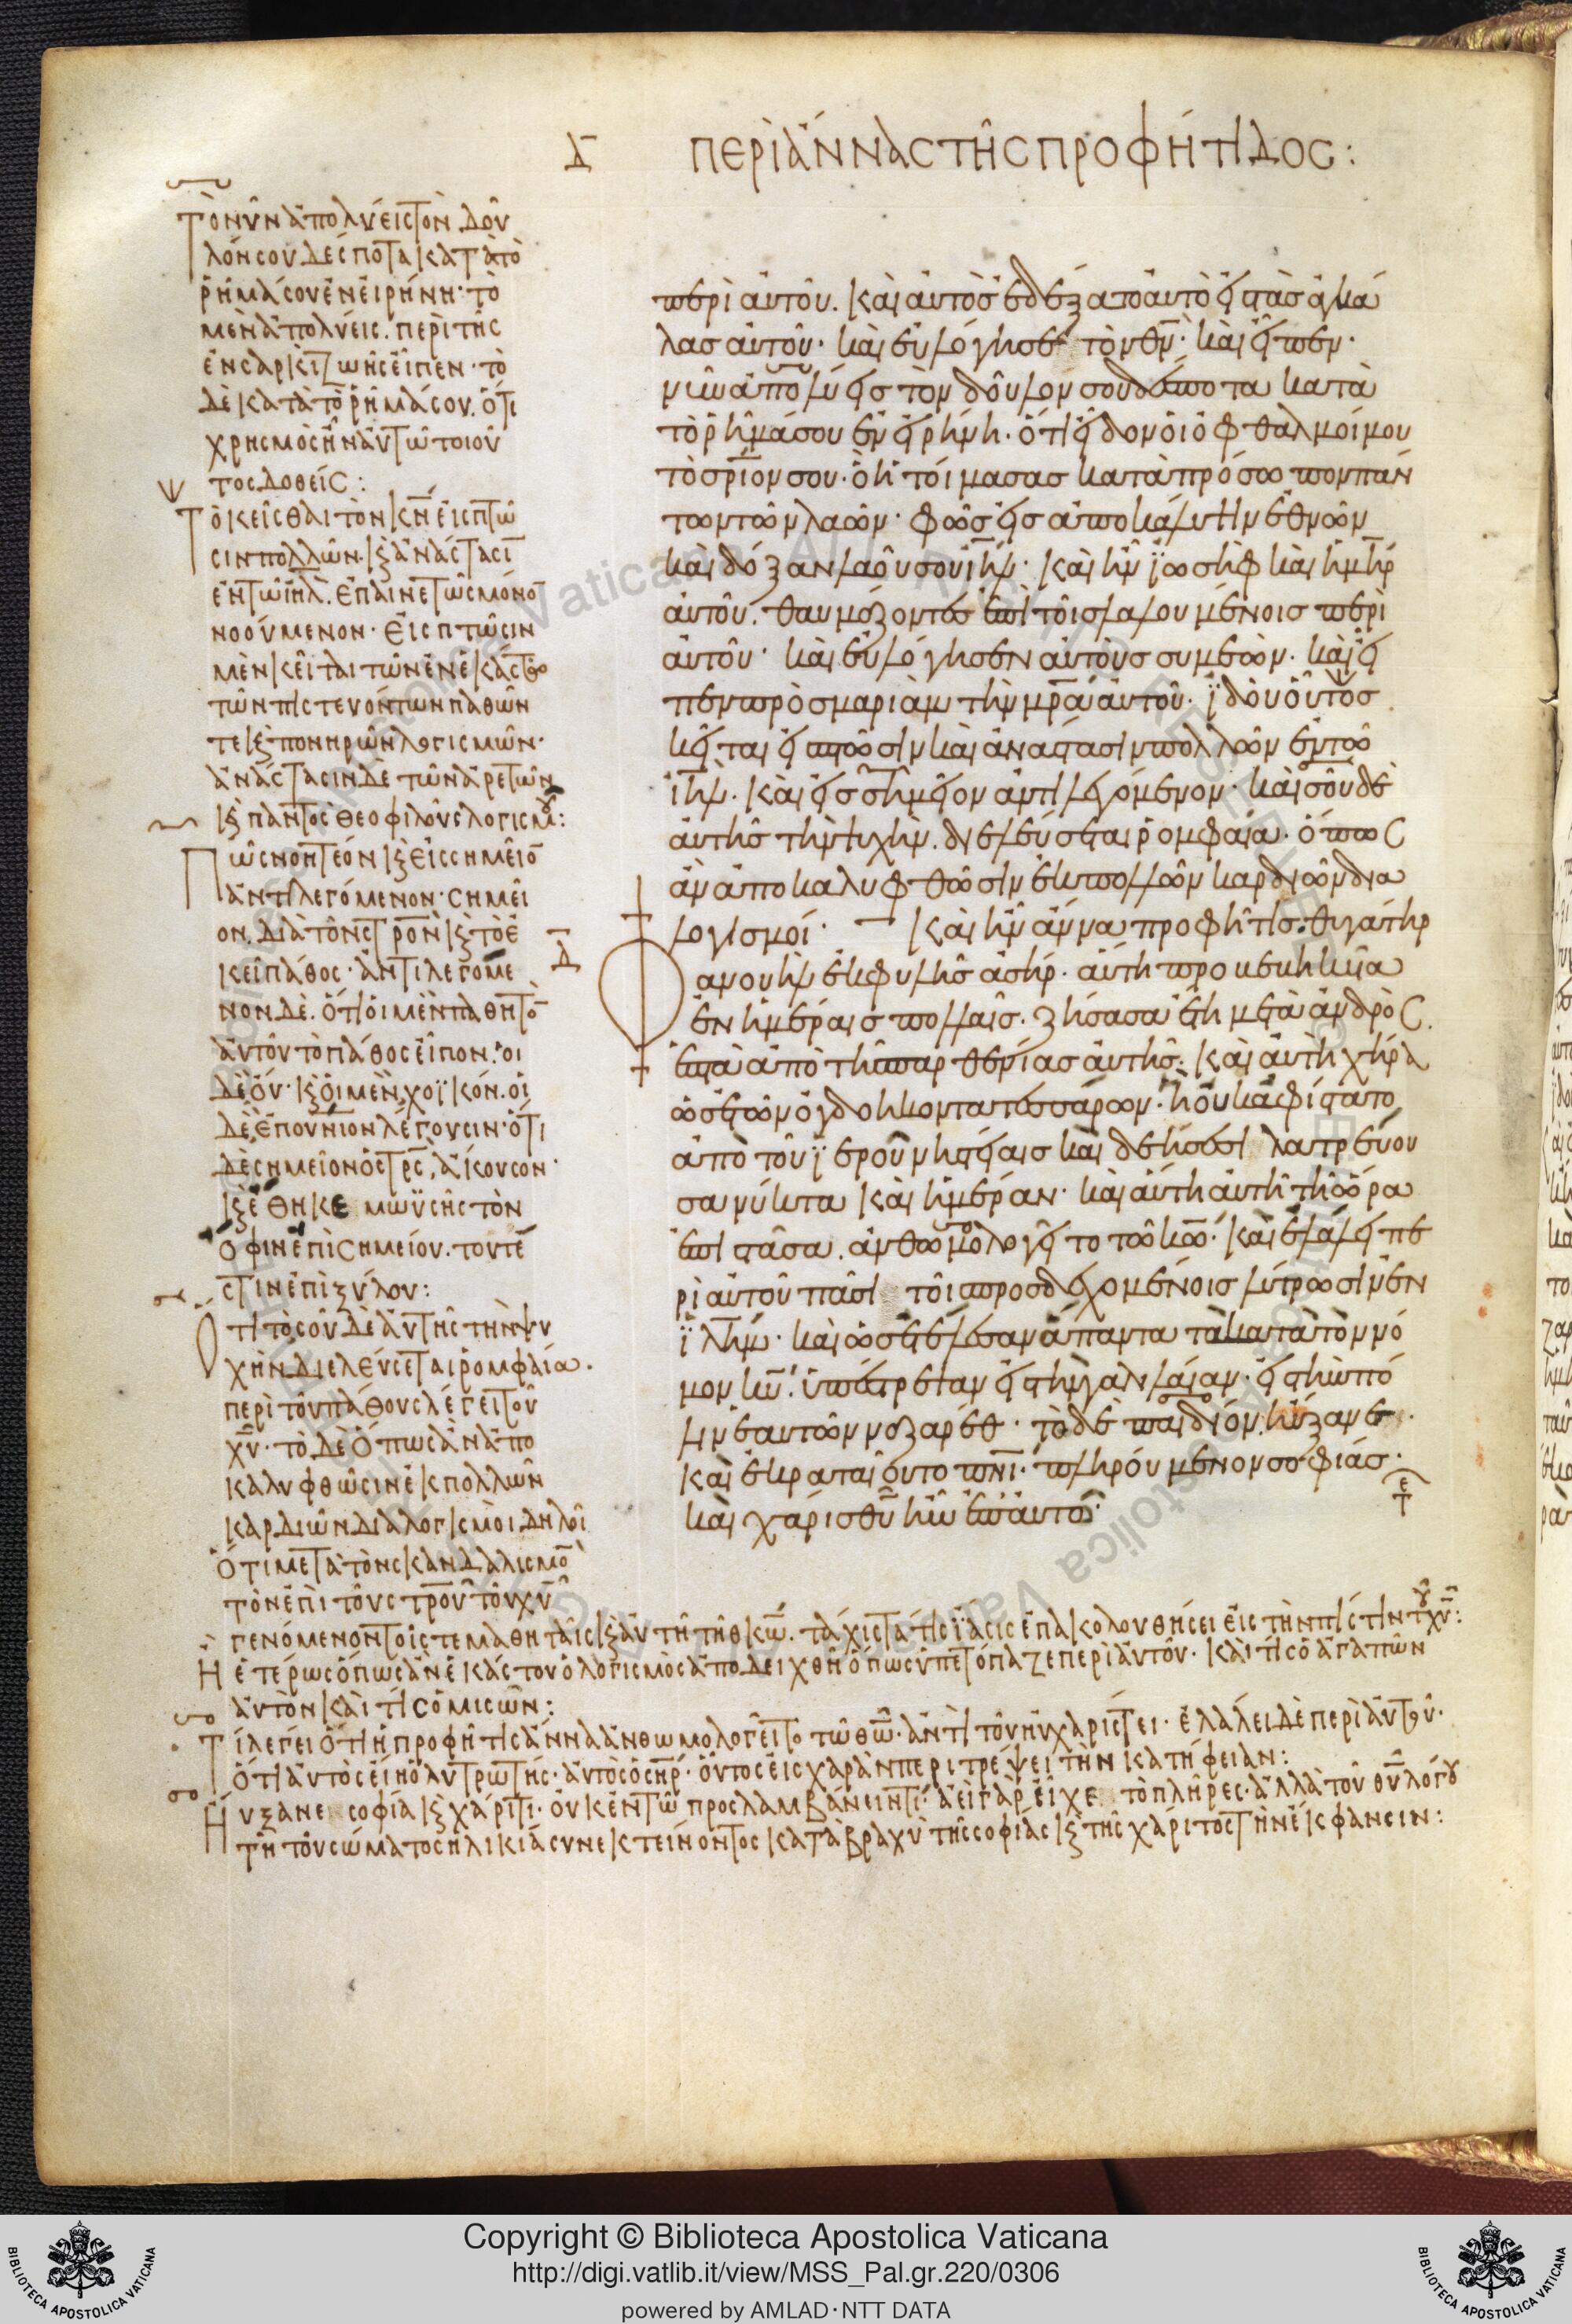 Δ ΠΕΡὶ ἌΝΝΑς Τῆς ΠΡΟΦΉΤΙΔΟς:
Τὸ νῦν ἀπολύεις τὸν δοῦ
λόν σου δέσποτα κατὰ τὸ
ῥῆμά σου ἐν εἰρήνη· τὸ
μὲν ἀπολύεις. περὶ τῆς
ἐν σαρκὶ ζωῆς εἶπεν· τὸ
δὲ κατὰ τὸ ῥῆμά σου. ὅτι
χρησμὸς ἦν αὐτῶ τοιοῦ
τος δοθείς:
Τὸ κεῖσθαι τὸν κν εἰς πτῶ
σιν πολλῶν. κ ἀνάστασϊ
ἐν τῶ ιηλ. ἐπαινετῶς μόνο
νοούμενον· Εἰς πτῶσιν
μὲν κεῖται τῶν ἐν ἑκάστω
τῶν πιστευόντων παθῶν
τε κ πονηρῶν λογισμῶν·
ἀνάστασιν δὲ τῶν ἀρετῶν
κ παντὸς θεοφιλοῦς λογισμοῦ:
Πῶς νοητέον κ εἰς σημεῖο
ἀντιλεγόμενον· σημεῖ
ον. διὰ τὸν σρον κ τὸ ἐ
κεῖ πάθος· ἀντιλεγόμε
νον δὲ. ὅτι οἱ μὲν παθητὸ
αὐτοῦ τὸ πάθος εἶπον. οἱ
δὲ οὔ· κ οἱ μὲν χοϊκόν. οἱ
δὲ ἐπουνιον λέγουσιν· ὅτι
δὲ σημεῖον ὁ σρς, ἄκουσον·
κ ἔθηκε μωϋσῆς τὸν
ὄφιν ἐπὶ σημείου. τουτέ
στιν ἐπὶ ξύλου:
Ὅτι τὸ σοῦ δὲ αὐτῆς τὴν ψυ
χὴν διελεύσεται ῥομφαία.
περὶ τοῦ πάθους λέγει τοῦ
χυ· τὸ δὲ ὅπως ἂν ἀπο
καλυφθῶσιν ἐκ πολλῶν
καρδιῶν διαλογισμοὶ. δηλοῖ
ὅτι μετὰ τὸν σκανδαλισμὸ
τὸν ἐπὶ τοῦ στρου τοῦ χυ
γενόμενον τοῖς τε μαθηταῖς κ αὐτῆ τῆ θκω. τάχιστά τις ἴασις ἐπακολουθήσει εἰς τὴν πίστιν τοῦ χυ:
Ἢ ἑτέρως ὅπως ἂν ἑκάστου ὁ λογισμὸς ἀποδειχθῆ ὅπως ὑπετόπαζε περὶ αὐτοῦ. καὶ τίς ὁ ἀγαπῶν
αὐτὸν καὶ τίς ὁ μισῶν:
Τί λέγει ὅτι ἡ προφῆτις ἄννα ἀνθωμολογεῖτο τῶ θω· ἀντὶ τοῦ ηὐχαρίστει· ἐλάλει δὲ περὶ αὐτοῦ.
ὅτι αὐτὸς εἴη ὁ λυτρωτής· αὐτὸς ὁ σηρ· οὗτος εἰς χαρὰν περιτρέψει τὴν κατήφειαν:
Ηὔξανε σοφία κ χάριτι· οὐκ ἐν τῶ προσλαμβάνειν τί· ἀεὶ γὰρ εἶχε τὸ πλῆρες· ἀλλὰ τοῦ θυ λόγου
τῆ τοῦ σώματος ἡλικία συνεκτείνοντος κατὰ βραχὺ τῆς σοφίας κ τῆς χάριτος τὴν ἔκφανσιν:
περὶ αὐτοῦ. καὶ αὐτὸς ἐδέξατο αὐτὸ εἰς τὰς ἀγκά
λας αὐτοῦ· καὶ εὐλόγησε τὸν θν· καὶ εἶπεν·
νῦν ἀπολύεις τὸν δοῦλον σου δέσποτα κατὰ
τὸ ῥῆμά σου ἐν εἰρήνη· ὅτι εἶδον οἱ ὀφθαλμοί μου
τὸ σριον σου· ὃ ἡτοίμασας κατὰ πρόσωπον πάν
των τῶν λαῶν· φῶς εἰς ἀποκάλυψιν ἐθνῶν
καὶ δόξαν λαοῦ σου ιηλ· καὶ ἦν ἰωσὴφ καὶ ἡ μηρ
αὐτοῦ. θαυμάζοντες ἐπὶ τοῖς λαλουμένοις περὶ
αὐτοῦ· καὶ εὐλόγησεν αὐτοὺς συμεών. καὶ εἶ
πεν πρὸς μαριὰμ τὴν μρα αὐτοῦ· ἰδοὺ οὗτος
κεῖται εἰς πτῶσιν καὶ ἀνάστασιν πολλῶν ἐν τῶ
ιηλ. καὶ εἰς σημεῖον ἀντιλεγόμενον· καὶ σοῦ δὲ
αὐτῆς τὴν ψυχὴν. διελεύσεται ῥομφαία· ὅπως
ἂν ἀποκαλυφθῶσιν ἐκ πολλῶν καρδιῶν δια
λογισμοί· καὶ ἦν ἄννα προφῆτις. θυγάτηρ
Δ φανουὴλ ἐκ φυλῆς ἀσήρ· αὕτη προβεβηκυῖα
ἐν ἡμέραις πολλαῖς. ζήσασα ἔτη μετὰ ἀνδρὸς
ἑπτὰ ἀπὸ τῆς παρθενίας αὐτῆς· καὶ αὐτὴ χήρα
ὡς ἐτῶν ὀγδοηκοντατεσσάρων. ἣ οὐκ ἀφίστατο
ἀπὸ τοῦ ἱεροῦ νηστείαις καὶ δεήσεσι λατρεύου
σα νύκτα καὶ ἡμέραν· καὶ αὕτη αὐτῆ τῆ ὥρα
ἐπιστᾶσα. ἀνθωμολογεῖτο τῶ κω. καὶ ἐλάλει πε
ρὶ αὐτοῦ πᾶσι τοῖ προσδεχομένοις λύτρωσιν ἐν
ιλημ· καὶ ὡς ἐτέλεσαν ἅπαντα τὰ κατὰ τὸν νό
μον κυ. ὑπέστρεψαν εἰς τὴν γαλιλαίαν· εἰς τὴν πό
λιν ἑαυτῶν ναζαρέθ· τὸ δὲ παιδίον. ηὔξανε
καὶ ἐκραταιοῦτο πνι· πληρούμενον σοφίας·
καὶ χάρις θυ ἦν ἐπ αὐτό·
Copyright © Biblioteca Apostolica Vaticana
http://digi.vatlib.it/view/MSS_Pal.gr.220/0306
powered by AMLAD·NTT DATA
BIBLIOTECA APOSTOLICA VATICANA
BIBLIOTECA APOSTOLICA VATICANA